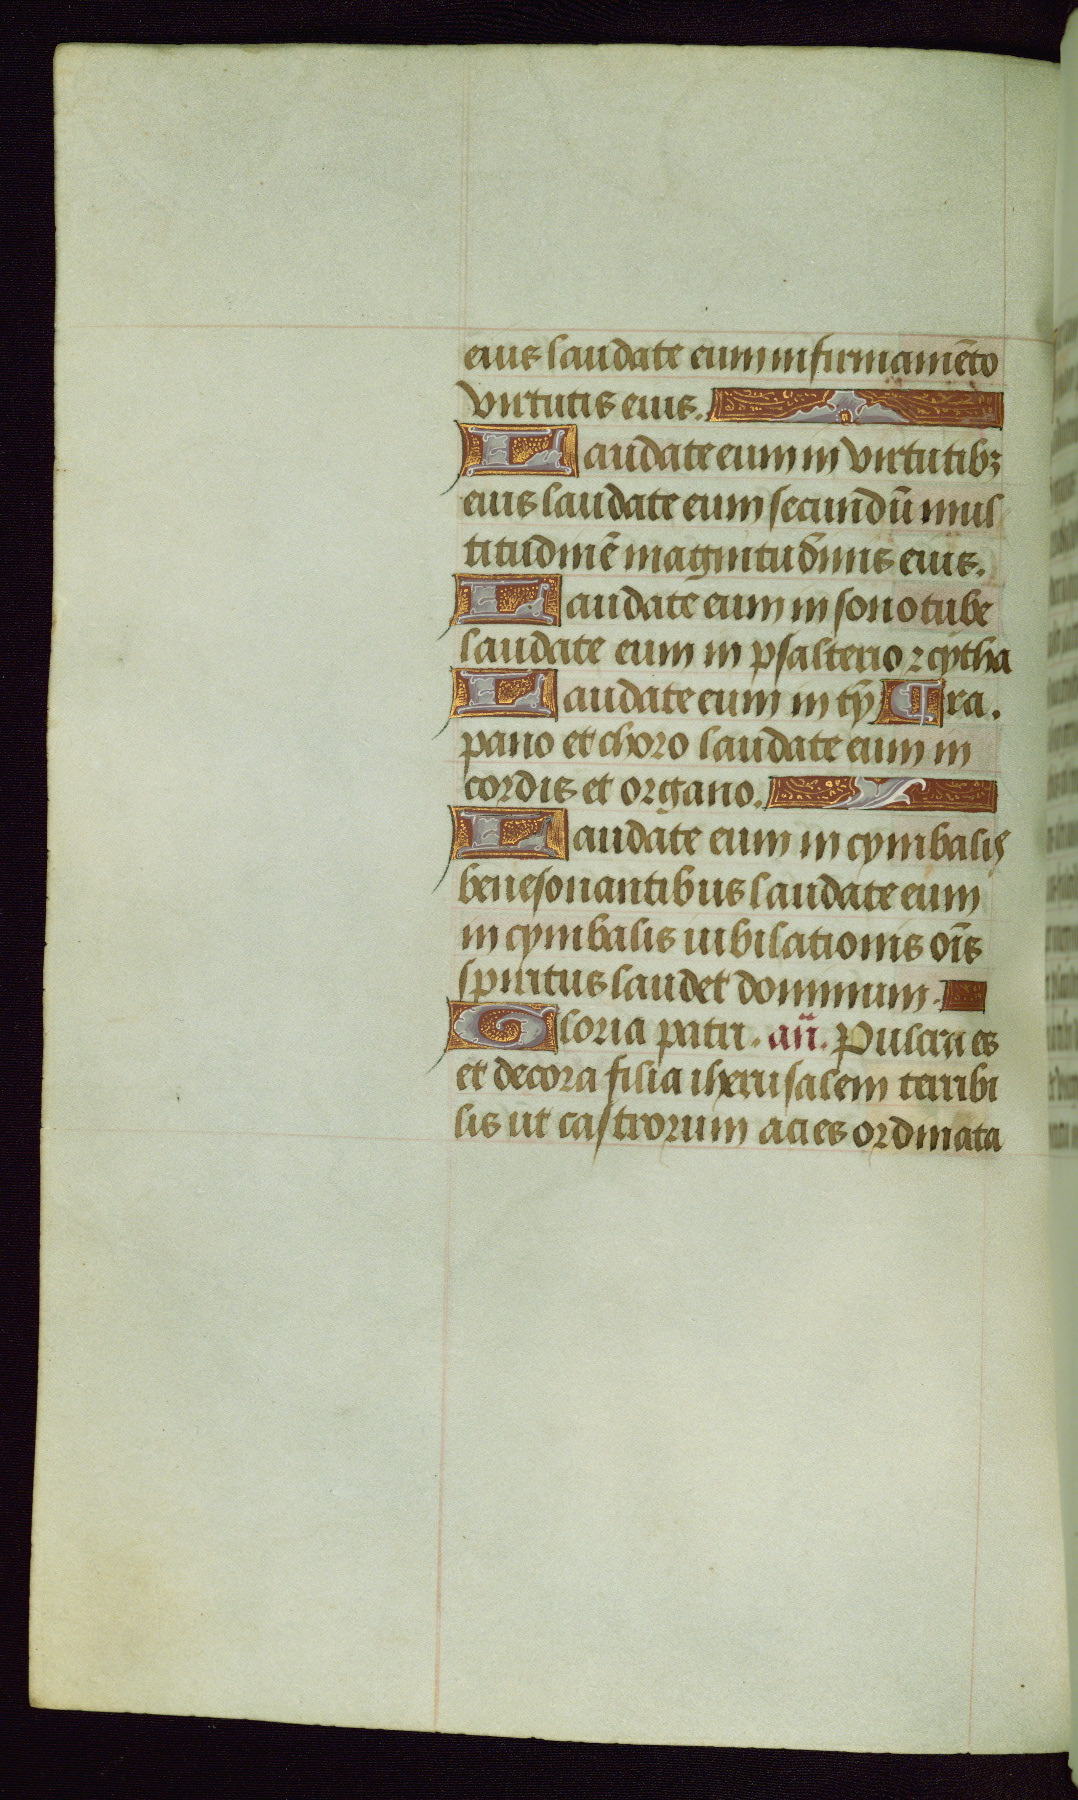 eius laudate eum in firmamēto
virtutis eius.
Laudate eum in virtutibꝫ
eius laudate eum secundū mul
titudinē magnitudinis eius.
Laudate eum in sono tube
laudate eum in psalterio ⁊ cytha
Laudate eum in tȳ ¶ ra.
pano et choro laudate eum in
cordis et organo.
Laudate eum in cymbalis
benesonantibus laudate eum
in cymbalis iubilationis oīs
spiritus laudet dominum.
Gloria patri. añ. Pulcra es
et decora filia iherusalem terribi
lis ut castrorum acies ordinata